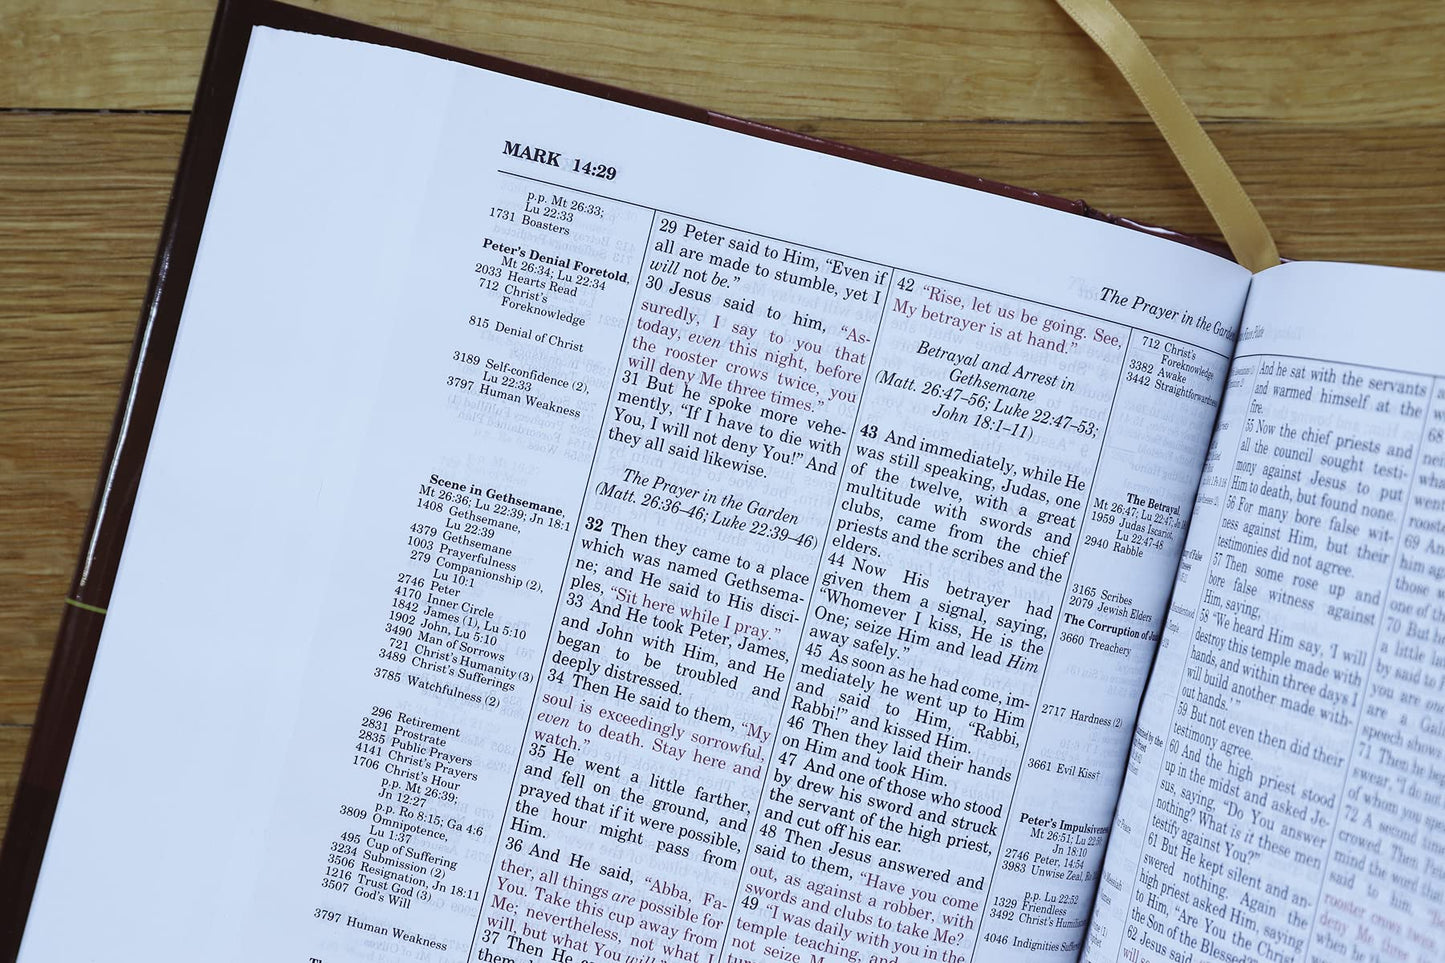 MARK 14:29
The Prayer in the Garden
p.p. Mt 26:33;
Lu 22:33
1731 Boasters
Peter's Denial Foretold,
Mt 26:34; Lu 22:34
2033 Hearts Read
712 Christ's
Foreknowledge
815 Denial of Christ
3189 Self-confidence (2),
Lu 22:33
3797 Human Weakness
Scene in Gethsemane,
Mt 26:36; Lu 22:39; Jn 18:1
1408 Gethsemane,
Lu 22:39
4379 Gethsemane
1003 Prayerfulness
279 Companionship (2),
Lu 10:1
2746 Peter
4170 Inner Circle
1842 James (1), Lu 5:10
1902 John, Lu 5:10
3490 Man of Sorrows
721 Christ's Humanity (3)
3489 Christ's Sufferings
3785 Watchfulness (2)
296 Retirement
2831 Prostrate
2835 Public Prayers
4141 Christ's Prayers
1706 Christ's Hour
p.p. Mt 26:39;
Jn 12:27
p.p. Ro 8:15; Ga 4:6
3809 Omnipotence,
Lu 1:37
495 Cup of Suffering
3234 Submission (2)
3506 Resignation, Jn 18:11
1216 Trust God (3)
3507 God's Will
3797 Human Weakness
29 Peter said to Him, "Even if
all are made to stumble, yet I
will not be."
30 Jesus said to him, "As-
suredly, I say to you that
today, even this night, before
the rooster crows twice, you
will deny Me three times."
31 But he spoke more vehe-
mently, "If I have to die with
You, I will not deny You!" And
they all said likewise.
The Prayer in the Garden
(Matt. 26:36–46; Luke 22:39–46)
32 Then they came to a place
which was named Gethsema-
ne; and He said to His disci-
ples, "Sit here while I pray."
33 And He took Peter, James,
and John with Him, and He
began to be troubled and
deeply distressed.
34 Then He said to them, "My
soul is exceedingly sorrowful,
even to death. Stay here and
watch."
35 He went a little farther,
and fell on the ground, and
prayed that if it were possible,
the hour might pass from
Him.
36 And He said, "Abba, Fa-
ther, all things are possible for
You. Take this cup away from
Me; nevertheless, not what I
will, but what You will."
37 Then He
42 "Rise, let us be going. See,
My betrayer is at hand."
Betrayal and Arrest in
Gethsemane
(Matt. 26:47–56; Luke 22:47–53;
John 18:1–11)
43 And immediately, while He
was still speaking, Judas, one
of the twelve, with a great
multitude with swords and
clubs, came from the chief
priests and the scribes and the
elders.
44 Now His betrayer had
given them a signal, saying,
"Whomever I kiss, He is the
One; seize Him and lead Him
away safely."
45 As soon as he had come, im-
mediately he went up to Him
and said to Him, "Rabbi,
Rabbi!" and kissed Him.
46 Then they laid their hands
on Him and took Him.
47 And one of those who stood
by drew his sword and struck
the servant of the high priest,
and cut off his ear.
48 Then Jesus answered and
said to them, "Have you come
out, as against a robber, with
swords and clubs to take Me?
49 "I was daily with you in the
temple teaching, and
not seize
712 Christ's
Foreknowledge
3382 Awake
3442 Straightforwardness
The Betrayal,
Mt 26:47; Lu 22:47; Jn
1959 Judas Iscariot,
Lu 22:47-48
2940 Rabble
3165 Scribes
2079 Jewish Elders
The Corruption of
3660 Treachery
2717 Hardness (2)
3661 Evil Kiss†
Peter's Impulsiveness
Mt 26:51; Lu
Jn 18:10
2746 Peter, 14:54
3983 Unwise Zeal,
p.p. Lu 22:52
1329 Friendless
3492 Christ's
4046 Indignities
And he sat with the servants
and warmed himself at the
fire.
55 Now the chief priests and
all the council sought testi-
mony against Jesus to put
Him to death, but found none.
56 For many bore false wit-
ness against Him, but their
testimonies did not agree.
57 Then some rose up and
bore false witness against
Him, saying,
58 "We heard Him say, 'I will
destroy this temple made with
hands, and within three days I
will build another made with-
out hands.' "
59 But not even then did their
testimony agree.
60 And the high priest stood
up in the midst and asked Je-
sus, saying, "Do You answer
nothing? What is it these men
testify against You?"
61 But He kept silent and an-
swered nothing. Again the
high priest asked Him, saying
to Him, "Are You the Christ,
the Son of the Blessed?"
62 Jesus said
68
went
69 An
those
one of th
70 But he
a little la
by said to
you are one
are a Gali
speech shows
71 Then he
swear, "I do not
of whom you
72 A second
crowed. Then
mind the word
said to him,
rooster crows
deny Me
when he